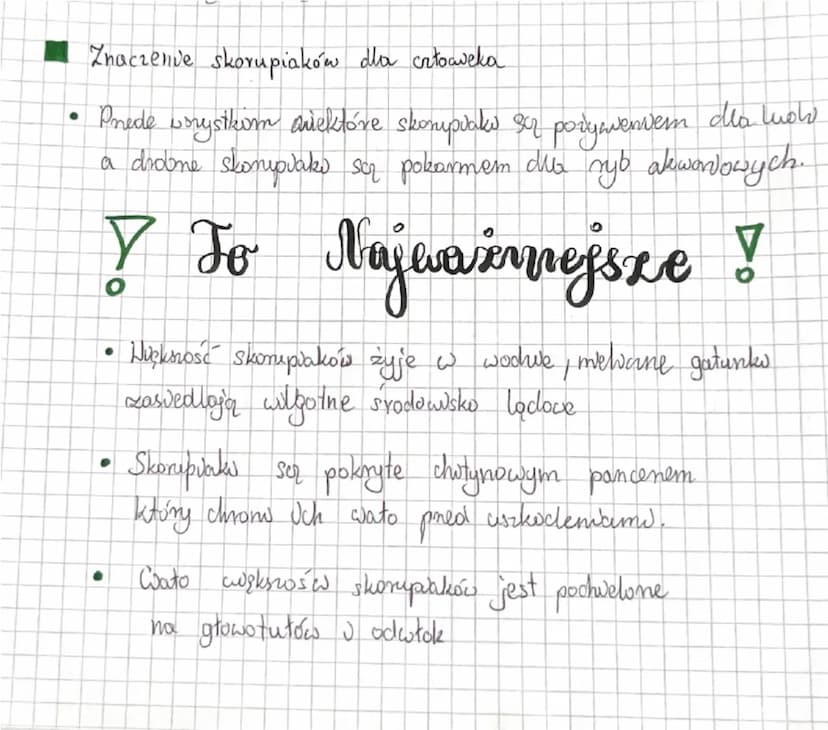 Znaczenie skorupiaków dla człowieka
Przede wszystkim niektóre skorupiaki są pożywieniem dla ludzi
a drobne skorupiaki są pokarmem dla ryb akwariowych.
! To Najważniejsze !
Większość skorupiaków żyje w wodzie, nieliczne gatunki
zasiedlają wilgotne środowisko lądowe
Skorupiaki są pokryte chitynowym pancerzem
który chroni ich ciało przed uszkodzeniami.
Ciało większości skorupiaków jest podzielone
na głowotułów i odwłok